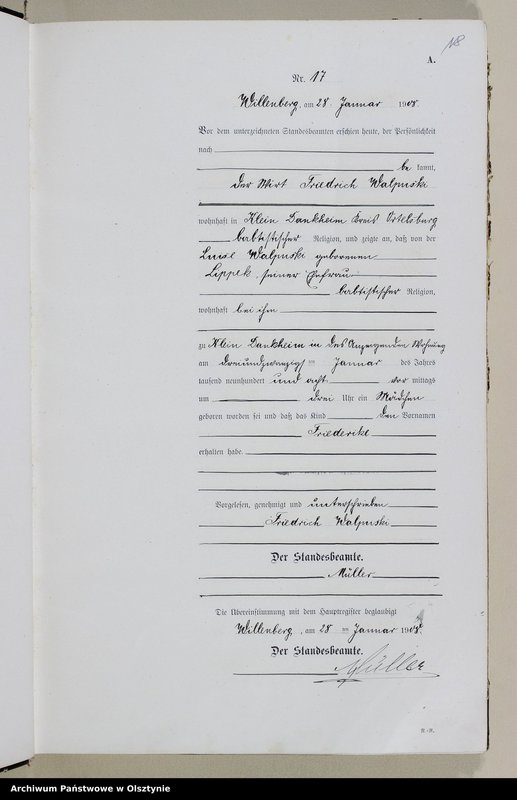 18
A.
Nr. 17
Willenberg, am 28. Januar 1908.
Vor dem unterzeichneten Standesbeamten erschien heute, der Persönlichkeit
nach
be kannt,
der Wirt Friedrich Walpuski
wohnhaft in Klein Dankheim Kreis Ortelsburg
babtistischer Religion, und zeigte an, daß von der
Luise Walpuski geborenen
Lippek, seiner Ehefrau
babtistischer Religion,
wohnhaft bei ihm
zu Klein Dankheim in des Anzeigenden Wohnung
am dreiundzwanzigsten Januar des Jahres
tausend neunhundert und acht vor mittags
um drei Uhr ein Mädchen
geboren worden sei und daß das Kind den Vornamen
Friederike
erhalten habe.
Vorgelesen, genehmigt und unterschrieben
Friedrich Walpuski
Der Standesbeamte.
Müller
Die Übereinstimmung mit dem Hauptregister beglaubigt
Willenberg, am 28 ten Januar 1908.
Der Standesbeamte.
Müller
Archiwum Państwowe w Olsztynie